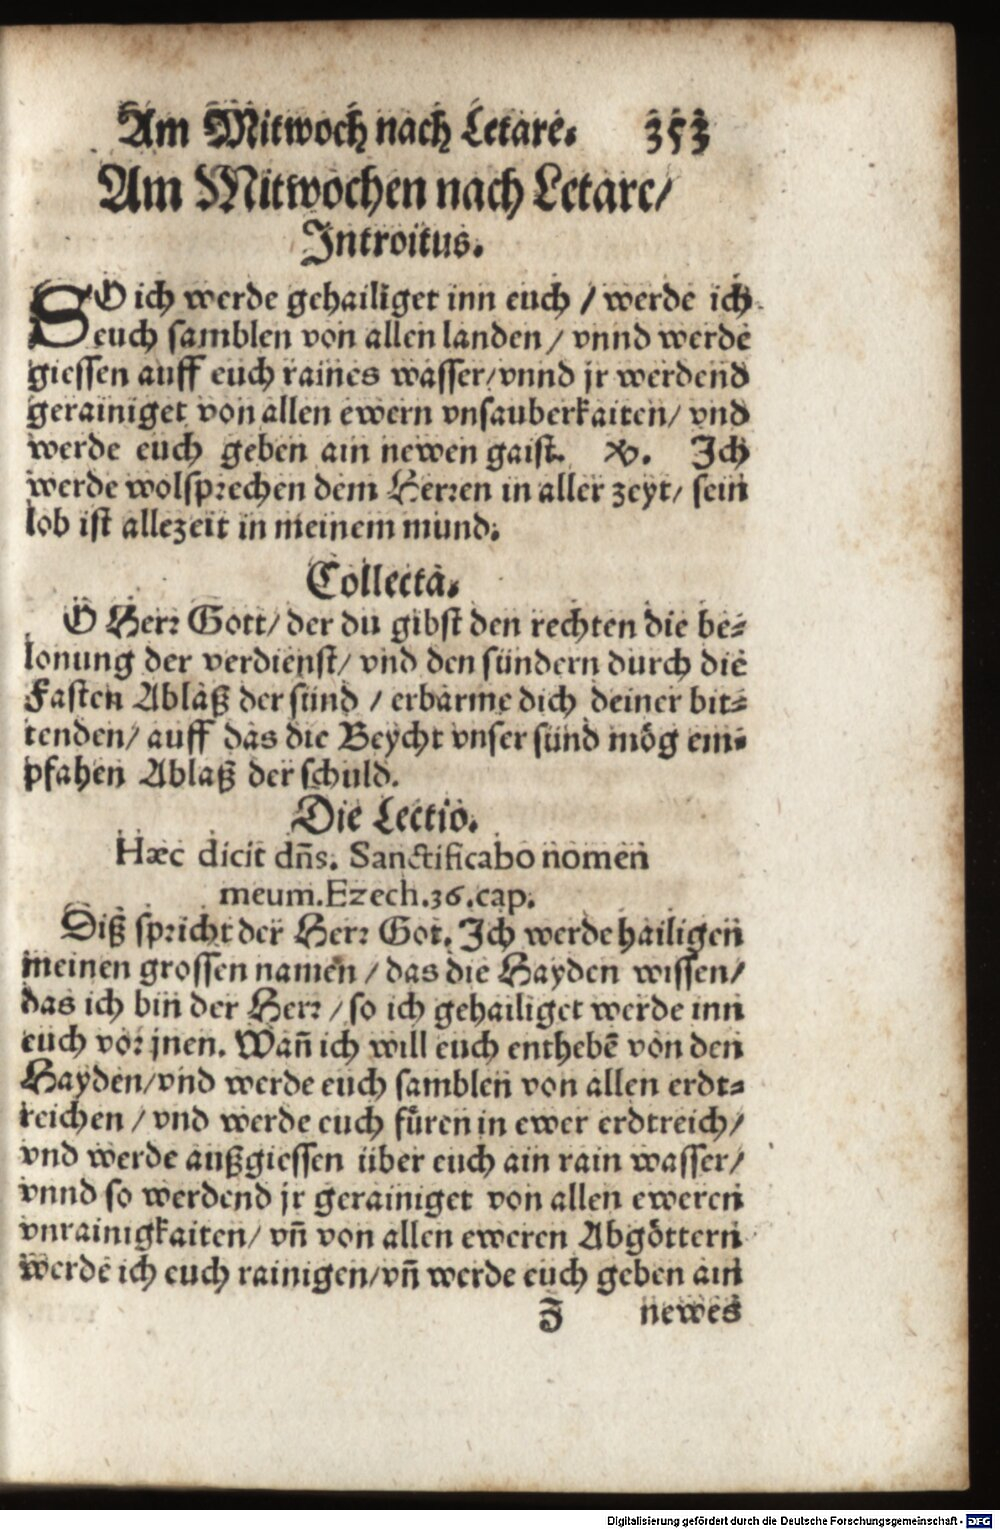 Am Mitwoch nach Letare. 353
Am Mitwochen nach Letare/
Introitus.
SO ich werde gehailiget inn euch / werde ich
euch samblen von allen landen / vnnd werde
giessen auff euch raines wasser/vnnd jr werdend
gerainiget von allen ewern vnsauberkaiten/ vnd
werde euch geben ain newen gaist. V. Ich
werde wolsprechen dem Herren in aller zeyt/ sein
lob ist allezeit in meinem mund.
Collecta.
O Herr Gott/ der du gibst den rechten die be-
lonung der verdienst/ vnd den sündern durch die
Fasten Ablaß der sünd / erbarme dich deiner bit-
tenden/ auff das die Beycht vnser sünd mög em-
pfahen Ablaß der schuld.
Die Lectio.
Hæc dicit dñs. Sanctificabo nomen
meum. Ezech. 36. cap.
Diß spricht der Herr Got. Ich werde hailigen
meinen grossen namen / das die Hayden wissen/
das ich bin der Herr / so ich gehailiget werde inn
euch vor jnen. Wañ ich will euch enthebē von den
Hayden/vnd werde euch samblen von allen erdt-
reichen / vnd werde euch füren in ewer erdtreich/
vnd werde außgiessen über euch ain rain wasser/
vnnd so werdend jr gerainiget von allen eweren
vnrainigkaiten/ vñ von allen eweren Abgöttern
werde ich euch rainigen/vñ werde euch geben ain
Z newes
Digitalisierung gefördert durch die Deutsche Forschungsgemeinschaft - DFG